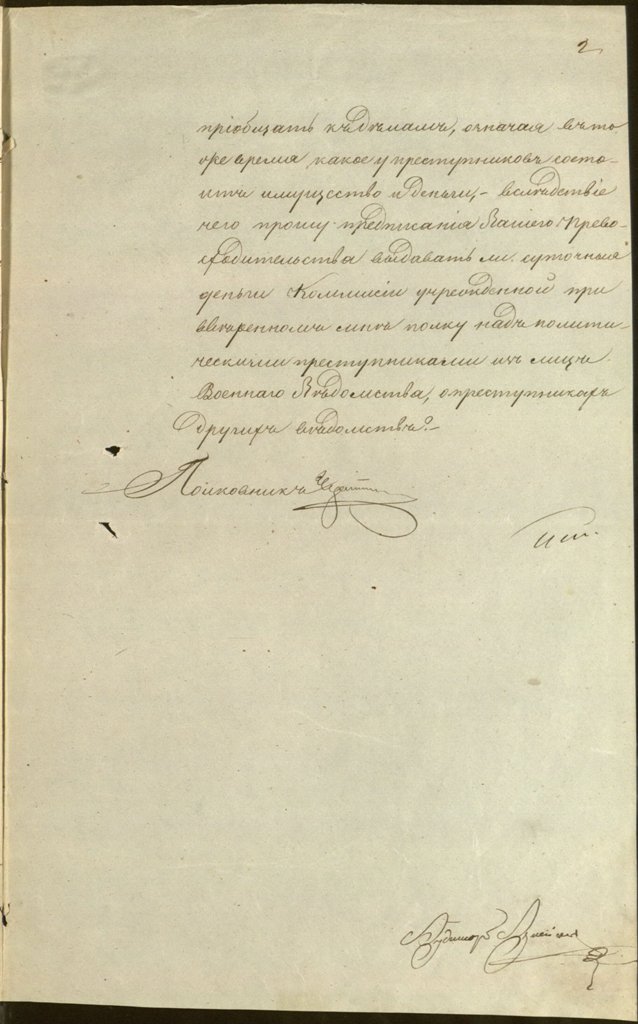 2
пріобщать къ дѣламъ, означая въ то
же время какое у преступниковъ состо-
итъ имущество и деньги,- вслѣдствіе
чего прошу предписанія Вашего Прево-
сходительства выдавать ли суточныя
деньги Коммисіи учрежденной при
ввѣренномъ мнѣ полку надъ полити-
ческими преступниками изъ лицъ
Военнаго Вѣдомства, о преступникахъ
другихъ вѣдомствъ?-
Полковникъ
Аудиторъ